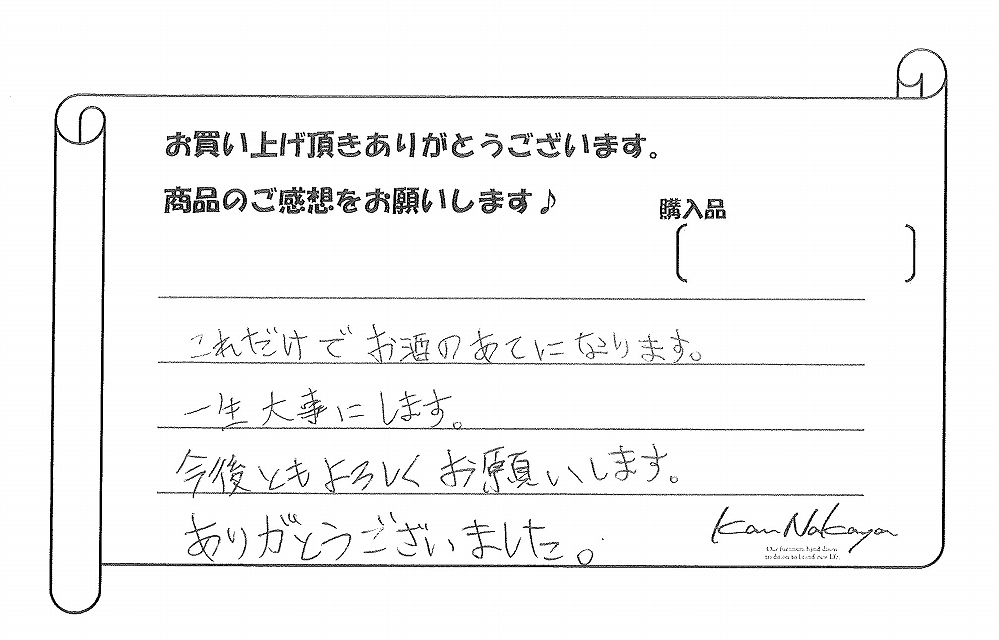 お買い上げ頂きありがとうございます。
商品のご感想をお願いします♪
購入品
これだけでお酒のあてになります。
一生大事にします。
今後ともよろしくお願いします。
ありがとうございました。
Kan Nakaya
Our furniture hand down